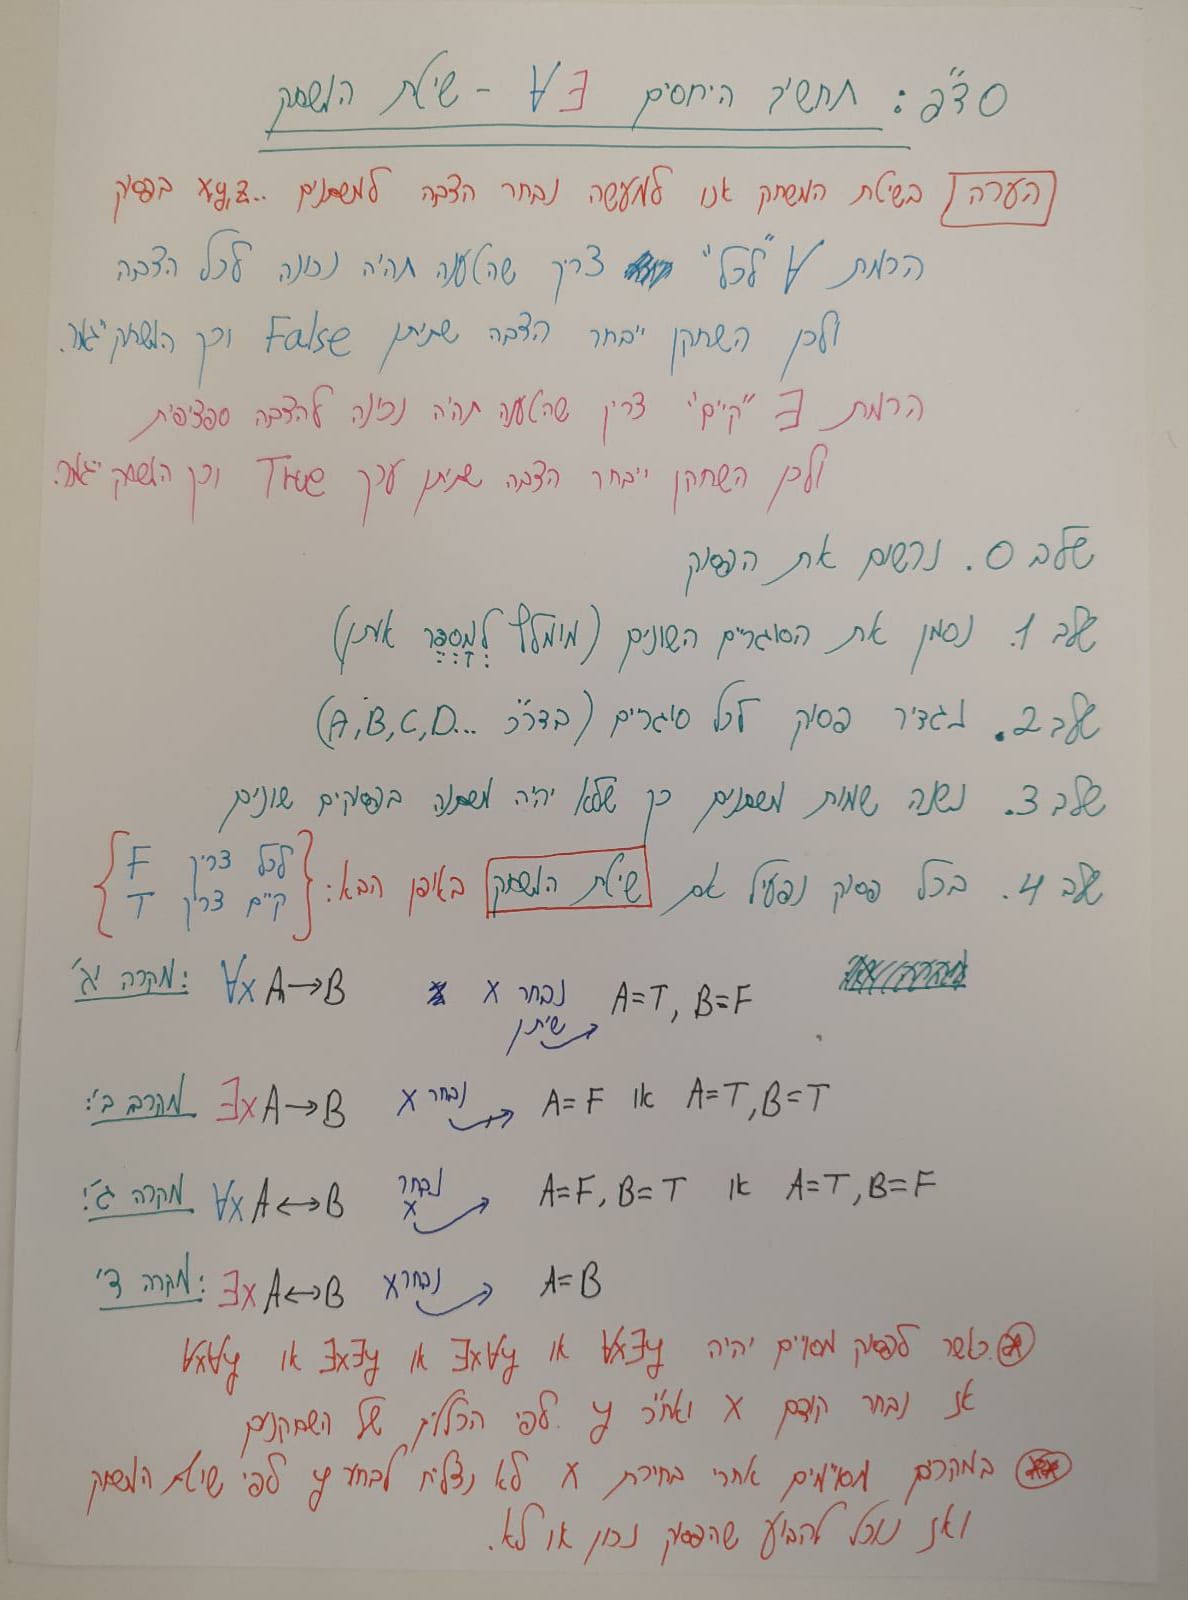 סד"פ: תחשיב היחסים ∀∃ - שיטת המשחק
הערה בשיטת המשחק אנו למעשה נבחר הצבה למשתנים ..x,y,z בפסוק
הכמת ∀ "לכל" צריך שהטענה תהיה נכונה לכל הצבה
ולכן השחקן ייבחר הצבה שתיתן False וכך המשחק יגמר.
הכמת ∃ "קיים" צריך שהטענה תהיה נכונה להצבה ספציפית
ולכן השחקן ייבחר הצבה שתיתן ערך True וכך המשחק יגמר.
שלב 0. נרשום את הפסוק
שלב 1. נסמן את הסוגריים השונים (מומלץ לְמַסְפֵּר אותן)
שלב 2. נגדיר פסוק לכל סוגריים (בדר"כ A,B,C,D...)
שלב 3. נשנה שמות משתנים כך שלא יהיה משתנה בפסוקים שונים
שלב 4. בכל פסוק נפעיל את שיטת המשחק באופן הבא: {לכל צריך F
קיים צריך T}
מקרה א': ∀x A→B נבחר x שיתן A=T, B=F
מקרה ב': ∃x A→B נבחר x A=F או A=T, B=T
מקרה ג': ∀x A↔B נבחר x A=F, B=T או A=T, B=F
מקרה ד': ∃x A↔B נבחר x A=B
* כאשר לפסוק מסויים יהיה ∀x∃y או ∃x∀y או ∃x∃y או ∀x∀y
אז נבחר קודם x ואח"כ y לפי הכללים של השחקנים
** במקרים מסויימים אחרי בחירת x לא נצליח לבחור y לפי שיטת המשחק
ואז נוכל להביע שהפסוק נכון או לא.